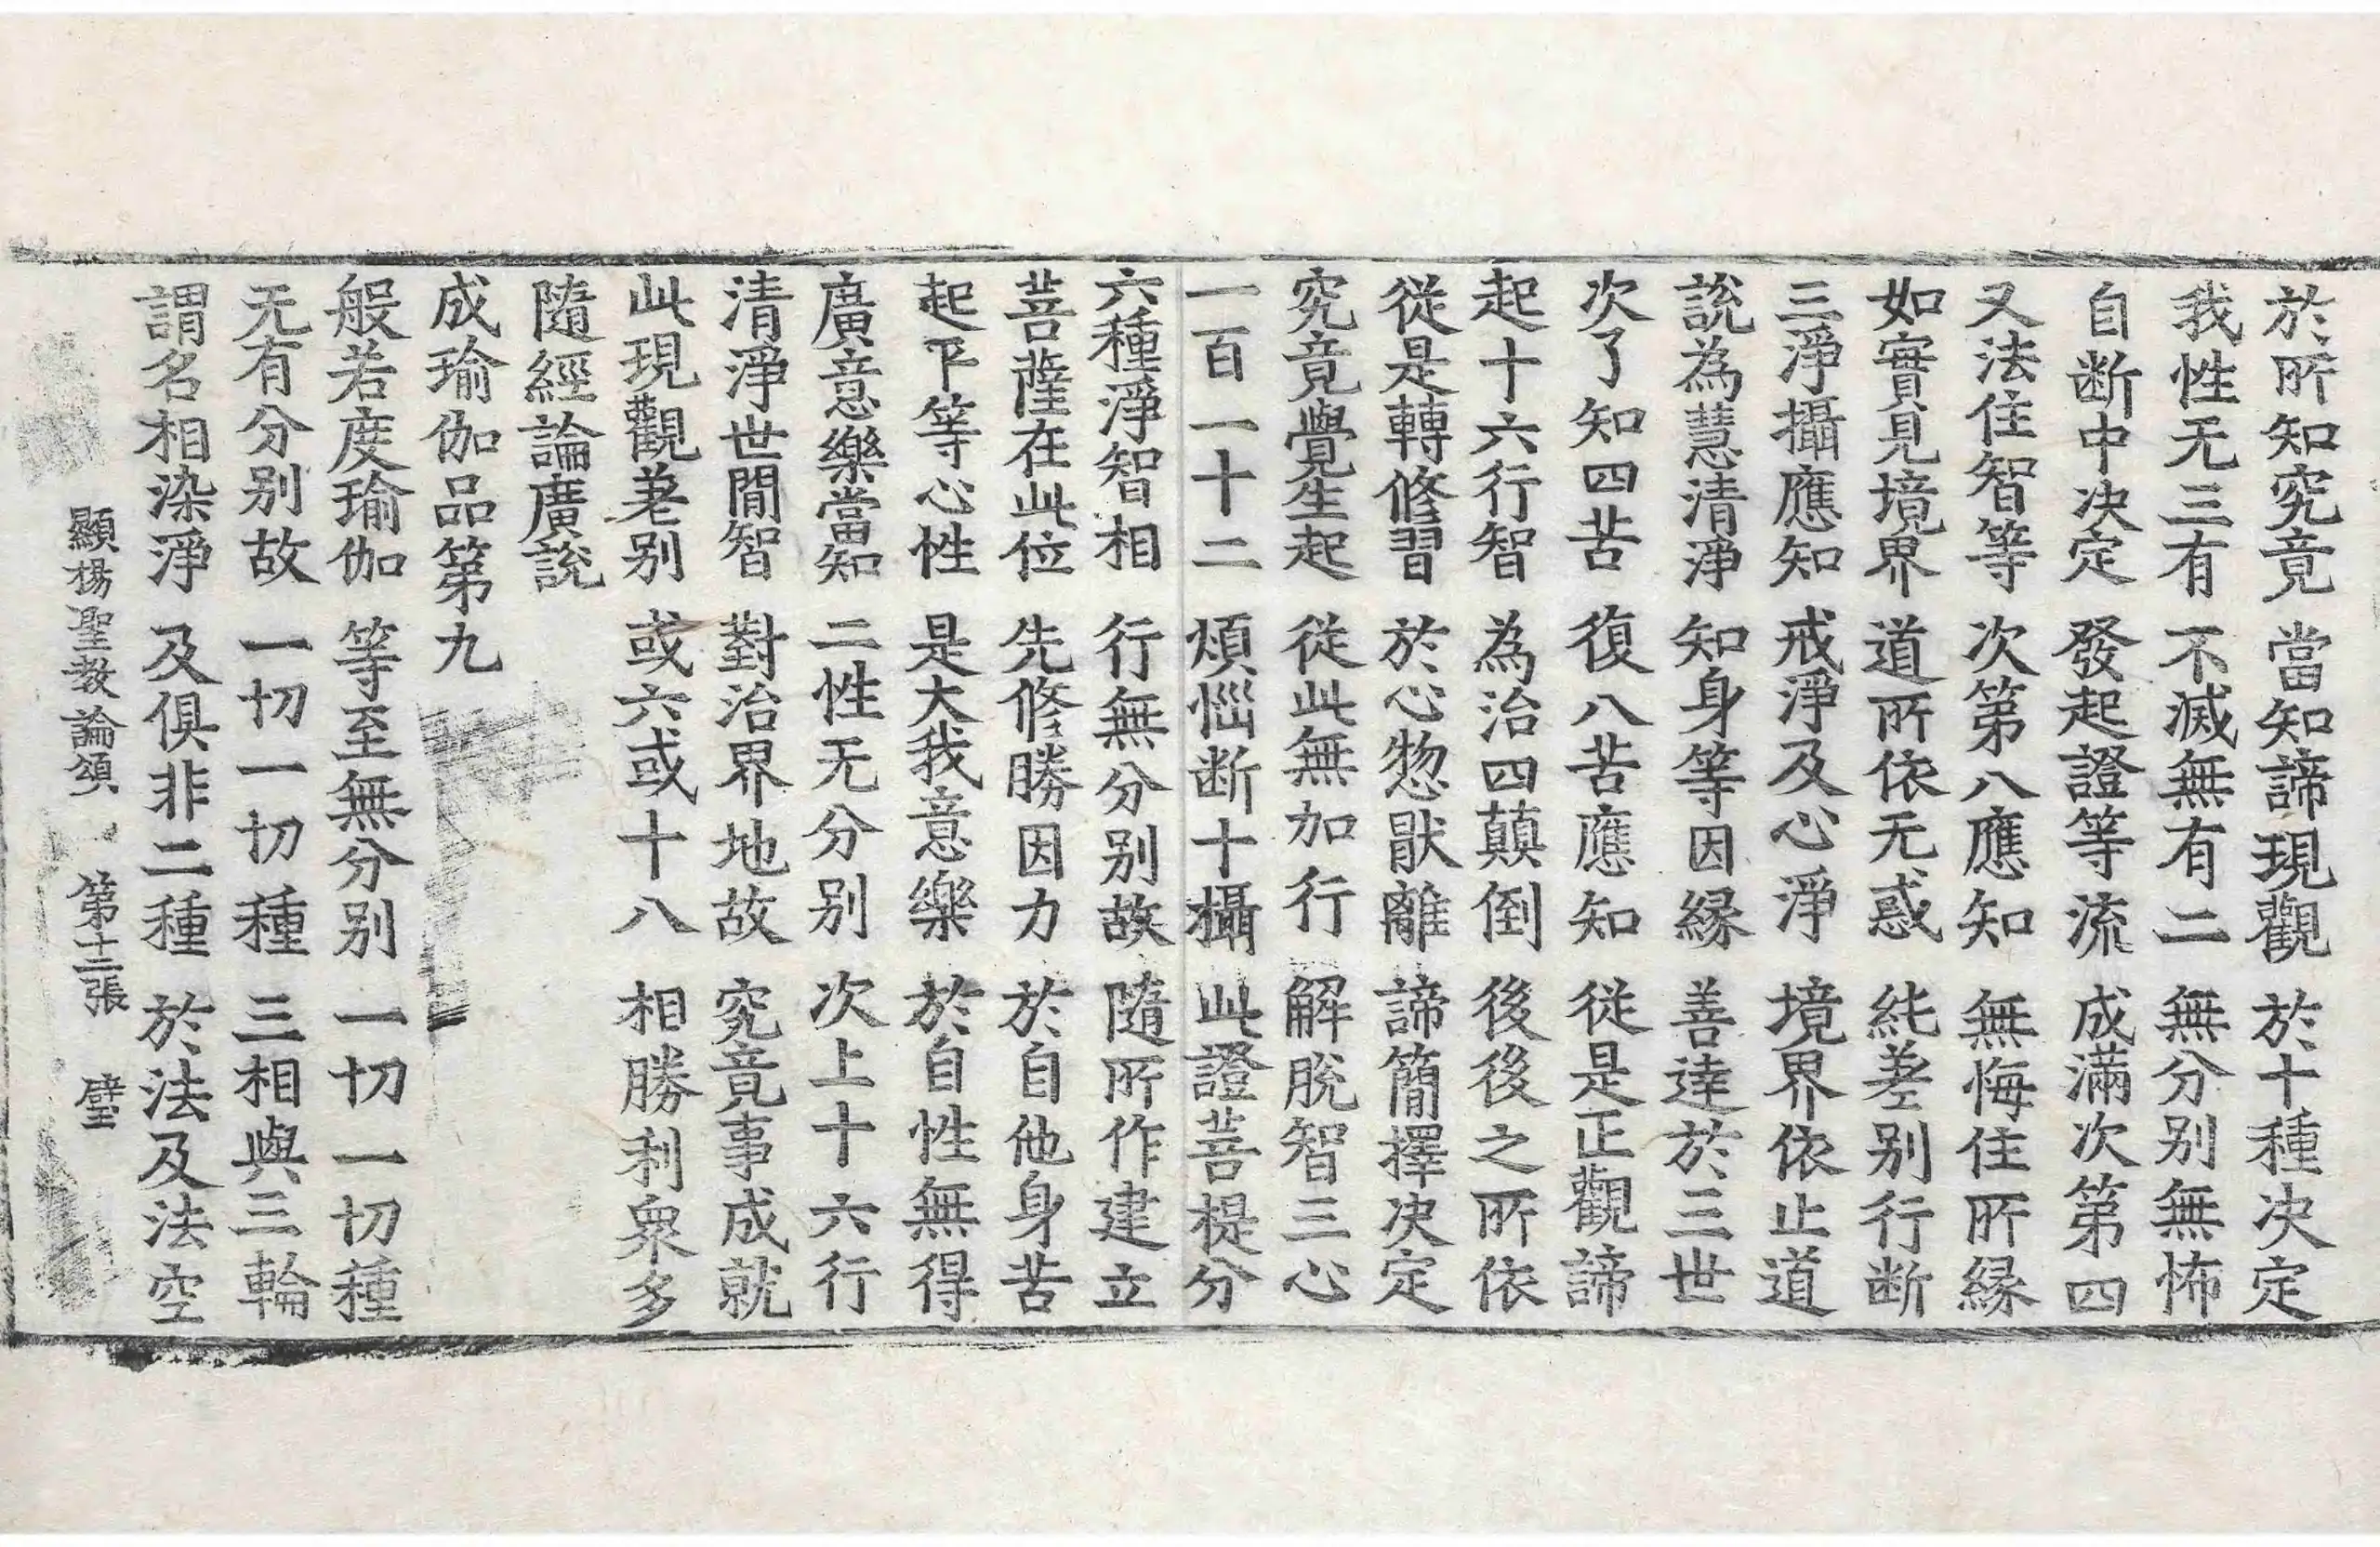 於所知究竟 當知諦現觀 於十種決定
我性无三有 不滅無有二 無分别無怖
自断中决定 發起證等流 成滿次第四
又法住智等 次第八應知 無悔住所縁
如實見境界 道所依无惑 純差别行断
三淨攝應知 戒淨及心淨 境界依止道
說為慧清淨 知身等因縁 善達於三世
次了知四苦 復八苦應知 從是正觀諦
起十六行智 為治四顛倒 後後之所依
從是轉修習 於心惣猒離 諦簡擇决定
究竟覺生起 從此無加行 解脫智三心
一百一十二 煩惱断十攝 此證菩提分
六種淨智相 行無分别故 隨所作建立
菩薩在此位 先修勝因力 於自他身苦
起平等心性 是大我意樂 於自性無得
廣意樂當知 二性无分别 次上十六行
清淨世間智 對治界地故 究竟事成就
此現觀差别 或六或十八 相勝利衆多
隨經論廣說
成瑜伽品第九
般若度瑜伽 等至無分别 一切一切種
无有分别故 一切一切種 三相與三輪
謂名相染淨 及俱非二種 於法及法空
顯揚聖教論頌 第十二張 璧